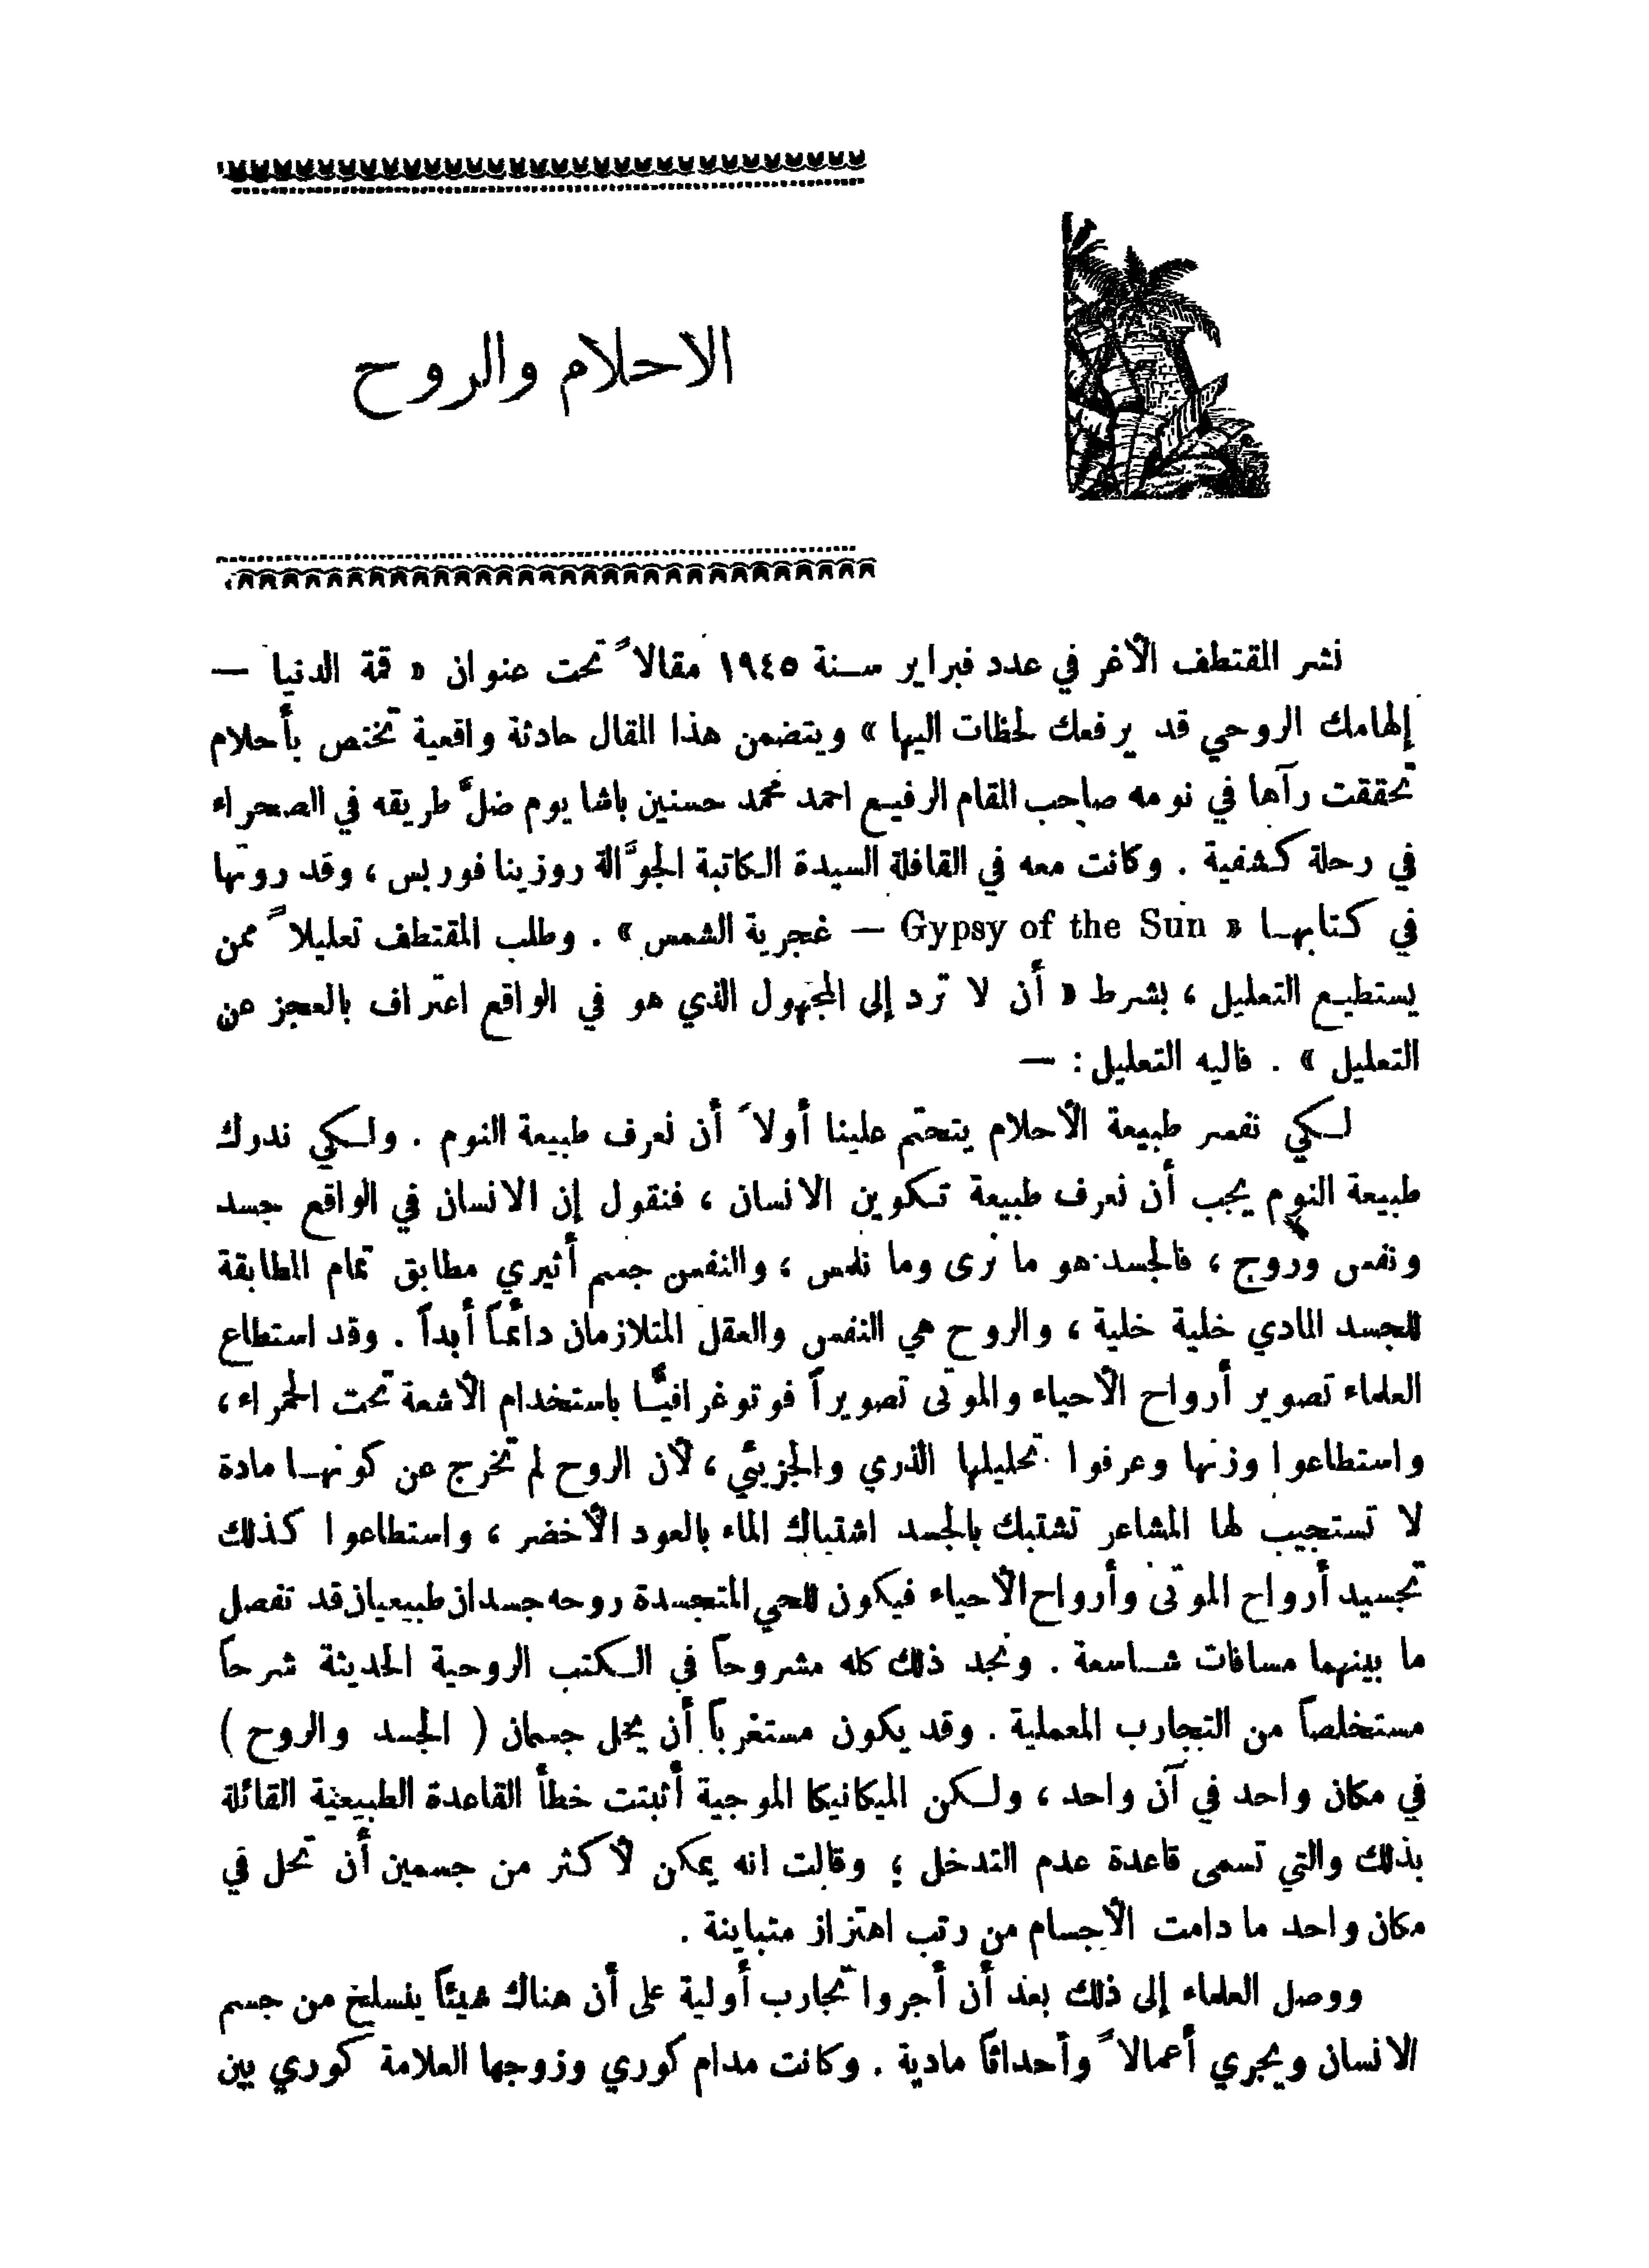 الاحلام والروح
نشر المقتطف الأغر في عدد فبراير سنة ١٩٤٥ مقالاً تحت عنوان « قمة الدنيا —
إلهامك الروحي قد يرفعك لحظات اليها » ويتضمن هذا المقال حادثة واقعية تختص بأحلام
تحققت رآها في نومه صاحب المقام الرفيع احمد محمد حسنين باشا يوم ضلَّ طريقه في الصحراء
في رحلة كشفية . وكانت معه في القافلة السيدة الكاتبة الجوَّالة روزينا فوربس ، وقد روتها
في كتابها « Gypsy of the Sun — غجرية الشمس » . وطلب المقتطف تعليلاً ممن
يستطيع التعليل ، بشرط « أن لا ترد إلى المجهول الذي هو في الواقع اعتراف بالعجز عن
التعليل » . فاليه التعليل : —
لكي نفسر طبيعة الأحلام يتحتم علينا أولاً أن نعرف طبيعة النوم . ولكي ندرك
طبيعة النوم يجب أن نعرف طبيعة تكوين الانسان ، فنقول إن الانسان في الواقع جسد
ونفس وروح ، فالجسد هو ما نرى وما نلمس ، والنفس جسم أثيري مطابق تمام المطابقة
للجسد المادي خلية خلية ، والروح هي النفس والعقل المتلازمان دائماً أبداً . وقد استطاع
العلماء تصوير أرواح الأحياء والموتى تصويراً فوتوغرافيًّا باستخدام الأشعة تحت الحمراء ،
واستطاعوا وزنها وعرفوا تحليلها الذري والجزيئي ، لأن الروح لم تخرج عن كونها مادة
لا تستجيب لها المشاعر تشتبك بالجسد اشتباك الماء بالعود الأخضر ، واستطاعوا كذلك
تجسيد أرواح الموتى وأرواح الأحياء فيكون للحي المتجسدة روحه جسدان طبيعيان قد تفصل
ما بينهما مسافات شاسعة . ونجد ذلك كله مشروحاً في الكتب الروحية الحديثة شرحاً
مستخلصاً من التجارب المعملية . وقد يكون مستغرباً أن يحل جسمان ( الجسد والروح )
في مكان واحد في آن واحد ، ولكن الميكانيكا الموجية أثبتت خطأ القاعدة الطبيعية القائلة
بذلك والتي تسمى قاعدة عدم التدخل ؛ وقالت انه يمكن لأكثر من جسمين أن تحل في
مكان واحد ما دامت الأجسام من رتب اهتزاز متباينة .
ووصل العلماء إلى ذلك بعد أن أجروا تجارب أولية على أن هناك شيئاً ينسلخ من جسم
الانسان ويجري أعمالاً وأحداثاً مادية . وكانت مدام كوري وزوجها العلامة كوري بين